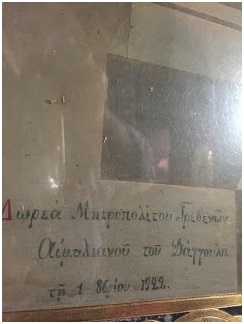 Δωρεά Μητροπολίτου Γρεβενῶν
Αἰμιλιανοῦ τοῦ Δάγγουλα
τῇ 1 8βρίου 1922.